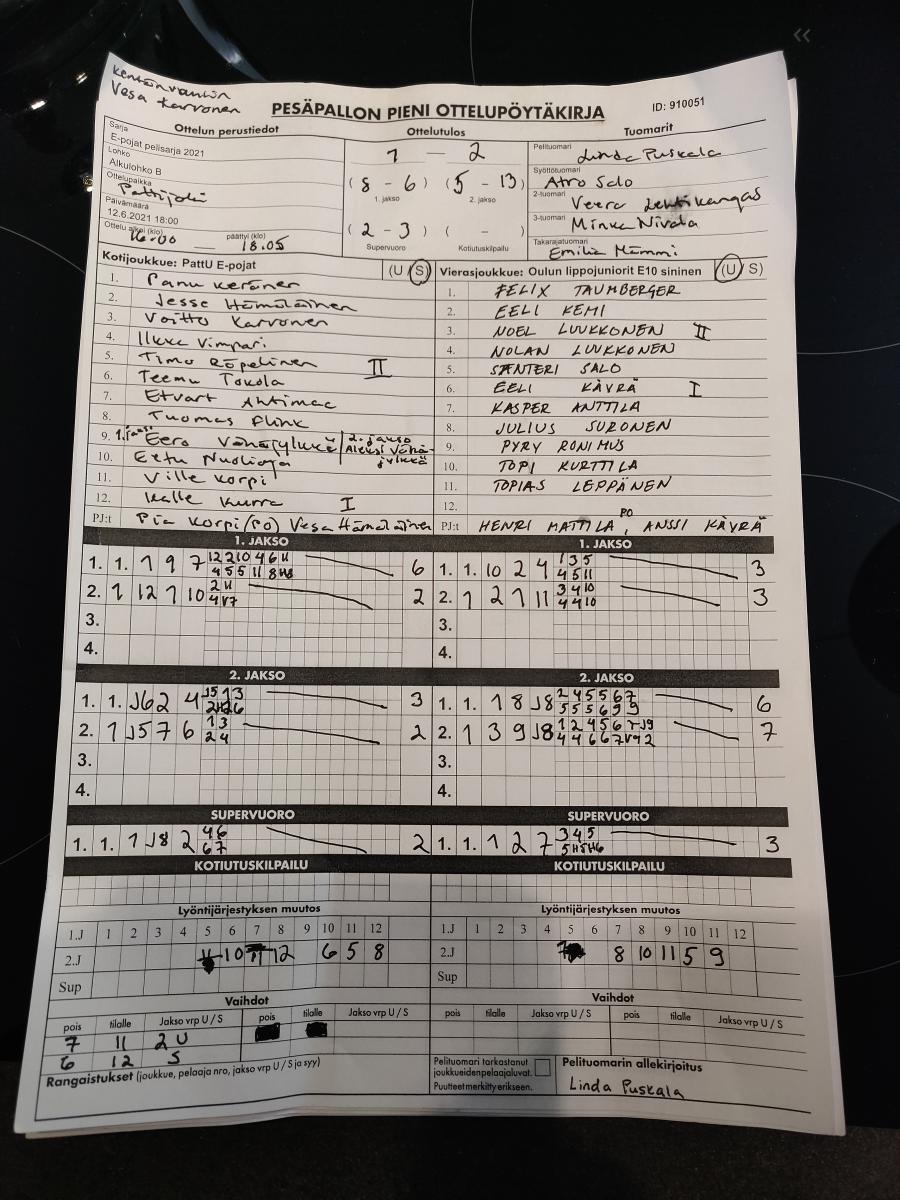 Kentänvanhin
Vesa Karvonen
PESÄPALLON PIENI OTTELUPÖYTÄKIRJA
ID: 910051
Ottelun perustiedot
Sarja
E-pojat pelisarja 2021
Lohko
Alkulohko B
Ottelupaikka
Pattijoki
Päivämäärä
12.6.2021 18:00
Ottelu alkoi (klo) päättyi (klo)
16.00 — 18.05
Ottelutulos
1 — 2
( 8 - 6 ) ( 5 - 13 )
1. jakso 2. jakso
( 2 - 3 ) ( - )
Supervuoro Kotiutuskilpailu
Tuomarit
Pelituomari Linda Puskala
Syöttötuomari
Atro Salo
2-tuomari Veera Lehtikangas
3-tuomari Minka Nivala
Takarajatuomari
Emilia Mämmi
Kotijoukkue: PattU E-pojat (U / S)
1. Panu Keränen
2. Jesse Hämäläinen
3. Voitto Karvonen
4. Ilkka Vimpari
5. Timo Röpelinen II
6. Teemu Tokola
7. Etvart Ahtimaa
8. Tuomas Flink
9. 1. jakso Eero Vähäjylkkä / 2. jakso Aleksi Vähäjylkkä
10. Eetu Nuolioja
11. Ville Korpi
12. Kalle Kurra I
PJ:t Pia Korpi (PO) Vesa Hämäläinen
Vierasjoukkue: Oulun lippojuniorit E10 sininen (U / S)
1. FELIX TAUMBERGER
2. EELI KEMI
3. NOEL LUUKKONEN II
4. NOLAN LUUKKONEN
5. SANTERI SALO
6. EELI KÄYRÄ I
7. KASPER ANTTILA
8. JULIUS SORONEN
9. PYRY RONIMUS
10. TOPI KURTTILA
11. TOPIAS LEPPÄNEN
12.
PJ:t HENRI MATTILA PO, ANSSI KÄYRÄ
1. JAKSO
1. 1. 1 9 7 12 2 10 4 6 11 6
4 5 5 11 8 H8
2. 1 12 1 10 2 11 2
4 V7
3.
4.
1. JAKSO
1. 1. 10 2 4 1 3 5 3
4 5 11
2. 1 2 1 11 3 4 10 3
4 4 10
3.
4.
2. JAKSO
1. 1. J6 2 4 J5 1 3 3
2. 1 J5 7 6 1 3 2
2 4
3.
4.
2. JAKSO
1. 1. 1 8 J8 2 4 5 5 6 7 6
5 5 5 6 9 9
2. 1 3 9 J8 1 2 4 5 6 7 J9 7
4 4 6 6 7 V9 2
3.
4.
SUPERVUORO
1. 1. 1 J8 2 4 6 2
6 7
SUPERVUORO
1. 1. 1 2 7 3 4 5 3
5 H5 H6
KOTIUTUSKILPAILU
KOTIUTUSKILPAILU
Lyöntijärjestyksen muutos
1.J 1 2 3 4 5 6 7 8 9 10 11 12
2.J 10 12 6 5 8
Sup
Lyöntijärjestyksen muutos
1.J 1 2 3 4 5 6 7 8 9 10 11 12
2.J 8 10 11 5 9
Sup
Vaihdot
pois tilalle Jakso vrp U / S pois tilalle Jakso vrp U / S
7 11 2 U
6 12 S
Vaihdot
pois tilalle Jakso vrp U / S pois tilalle Jakso vrp U / S
Rangaistukset (joukkue, pelaaja nro, jakso vrp U / S ja syy)
Pelituomari tarkastanut
joukkueiden pelaajaluvat.
Puutteet merkitty erikseen.
Pelituomarin allekirjoitus
Linda Puskala